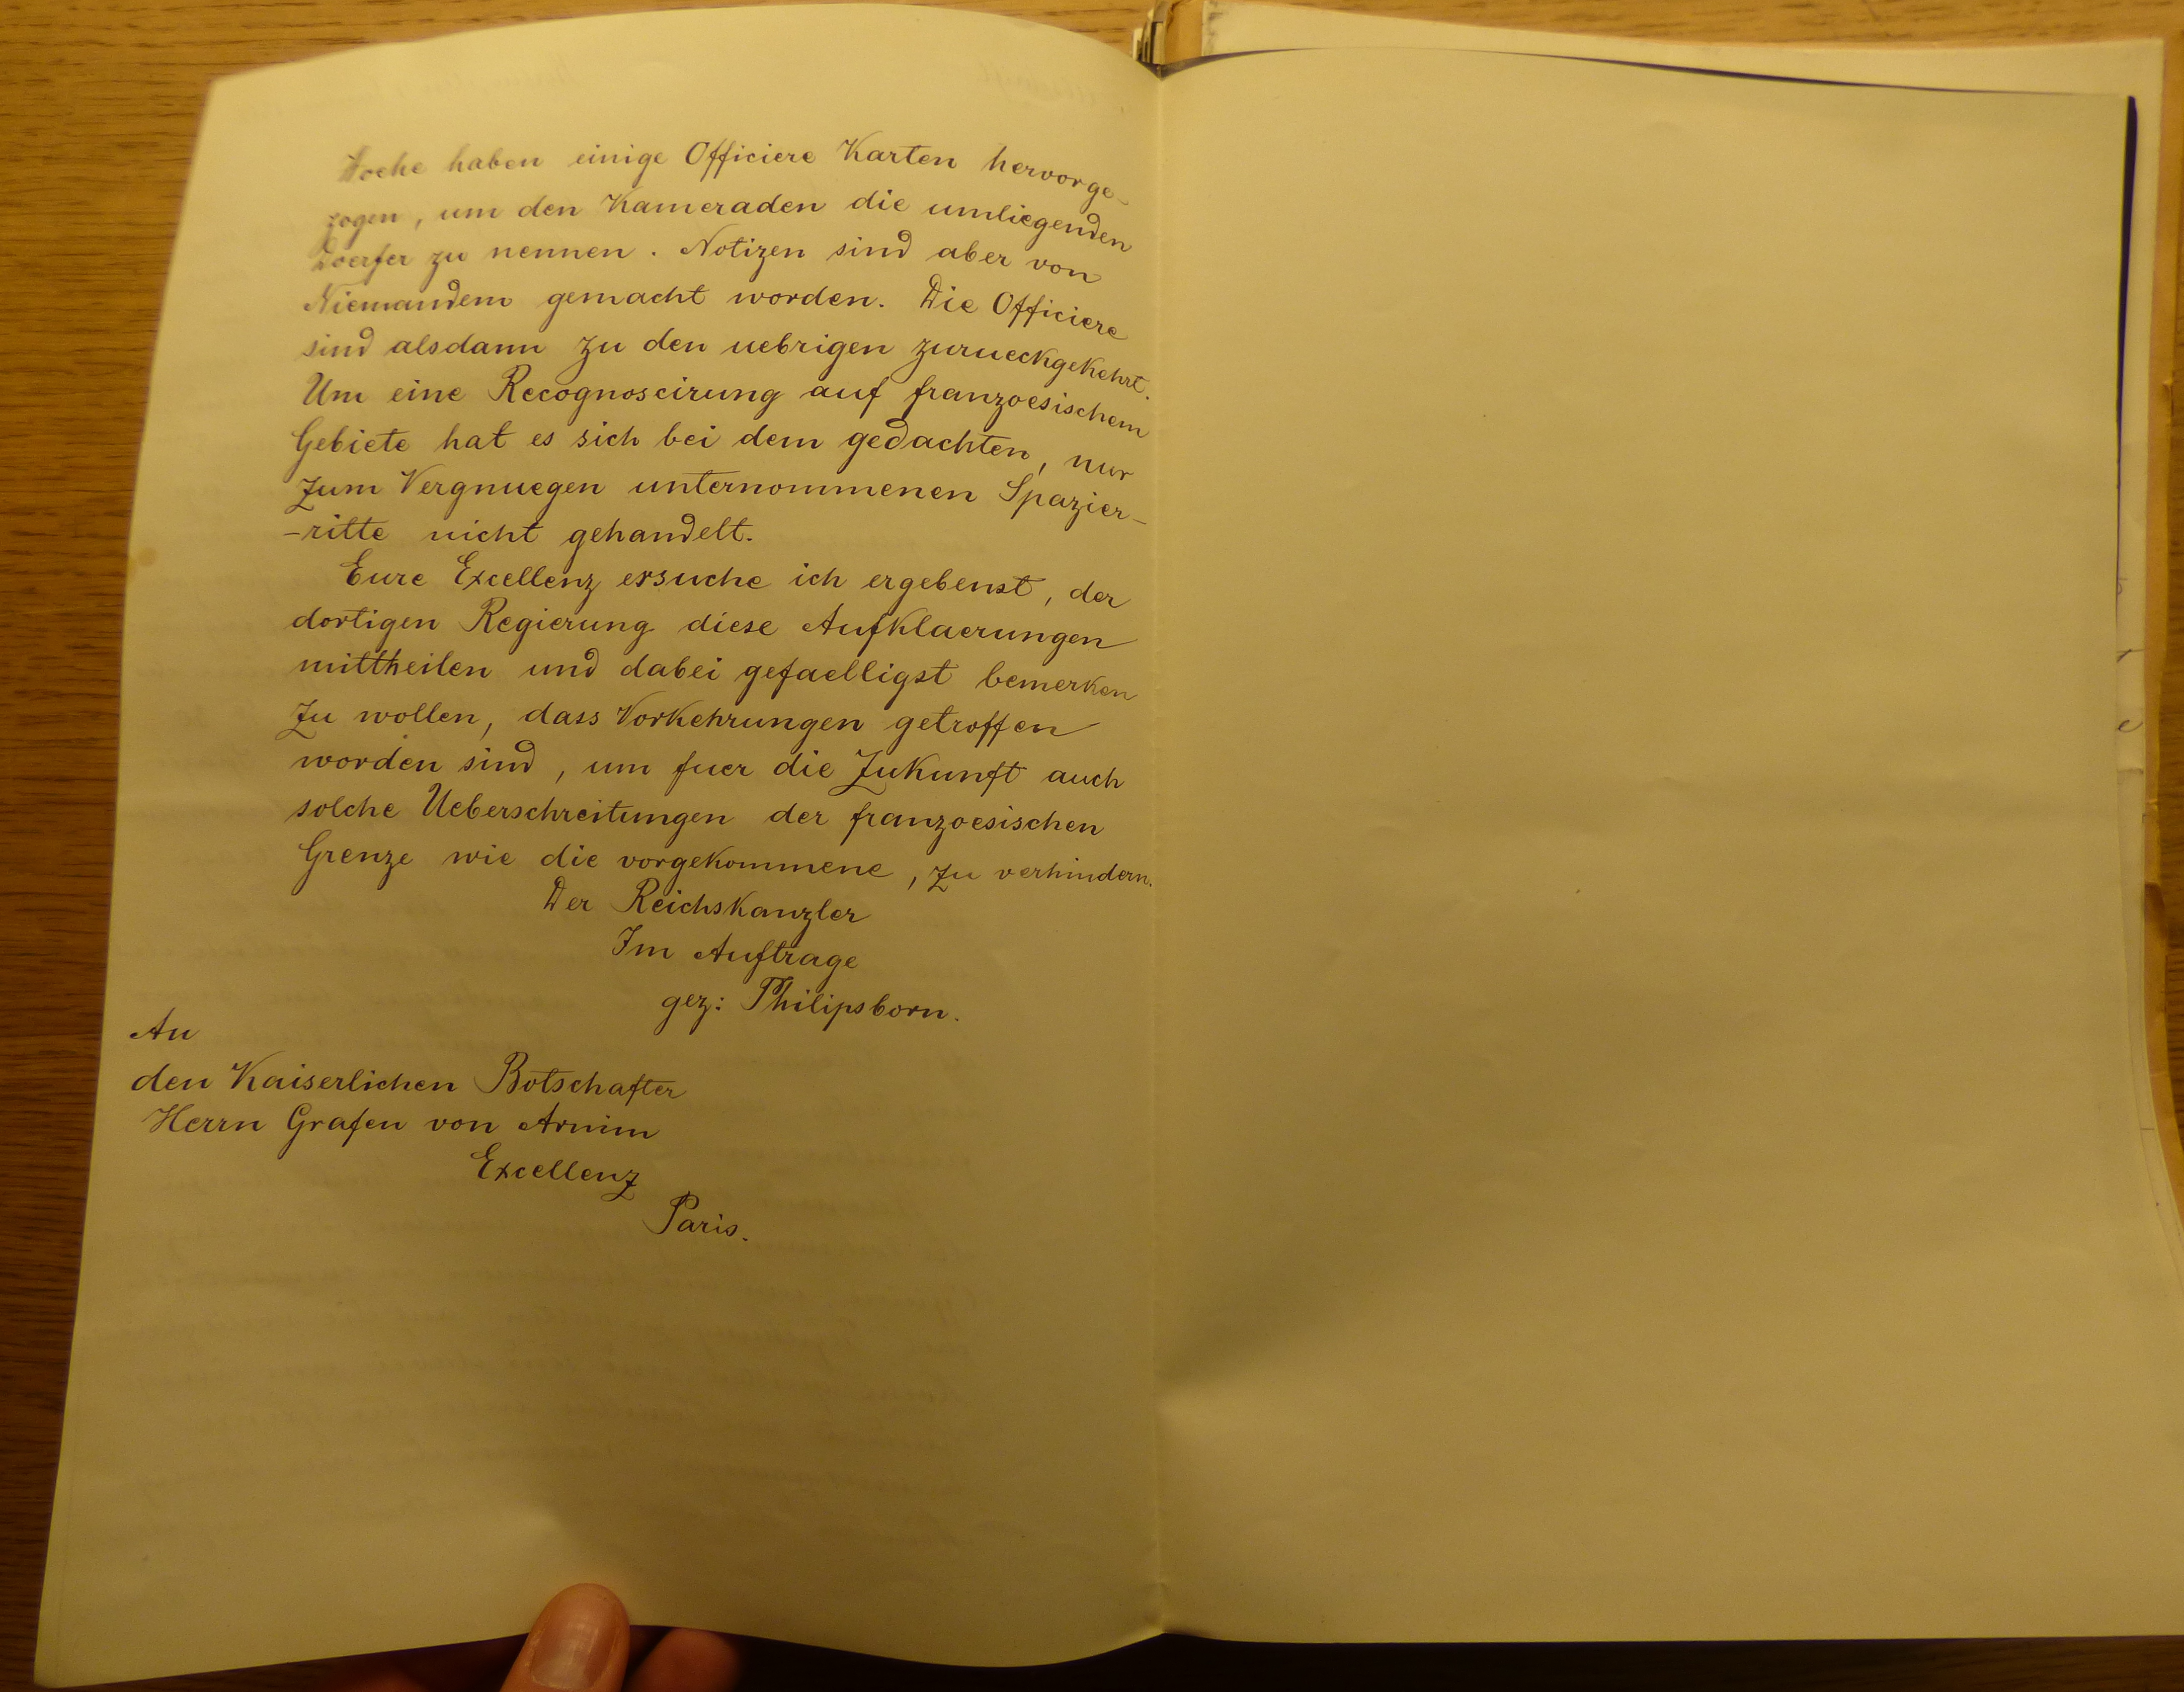 Hoehe haben einige Officiere Karten hervorge-
zogen, um den Kameraden die umliegenden
Doerfer zu nennen. Notizen sind aber von
Niemandem gemacht worden. Die Officiere
sind alsdann zu den uebrigen zurueckgekehrt.
Um eine Recognoscirung auf franzoesischem
Gebiete hat es sich bei dem gedachten, nur
zum Vergnuegen unternommenen Spazier-
-ritte nicht gehandelt.
Eure Excellenz ersuche ich ergebenst, der
dortigen Regierung diese Aufklaerungen
mittheilen und dabei gefaelligst bemerken
zu wollen, dass Vorkehrungen getroffen
worden sind, um fuer die Zukunft auch
solche Ueberschreitungen der franzoesischen
Grenze wie die vorgekommene, zu verhindern.
Der Reichskanzler
Im Auftrage
gez: Philipsborn.
An
den Kaiserlichen Botschafter
Herrn Grafen von Arnim
Excellenz
Paris.